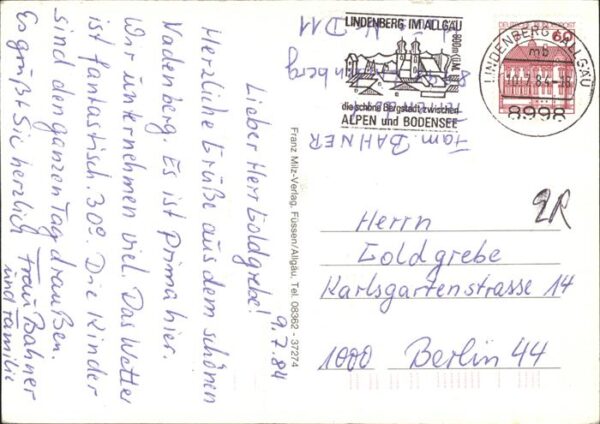 9.7.84
Lieber Herr Goldgrebe!
Herzliche Grüße aus dem schönen
Nadenberg. Es ist prima hier.
Wir unternehmen viel. Das Wetter
ist fantastisch. 30°. Die Kinder
sind den ganzen Tag draußen.
Es grüßt Sie herzlich Frau Bahner
und Familie
Franz Milz-Verlag, Füssen/Allgäu, Tel. 08362 - 37274
LINDENBERG IM ALLGÄU
800m ü.M.
die schöne Bergstadt zwischen
ALPEN und BODENSEE
LINDENBERG ALLGÄU
mb
8998
60
Fam. BAHNER
Herrn
Goldgrebe
Karlsgartenstrasse 14
1000 Berlin 44